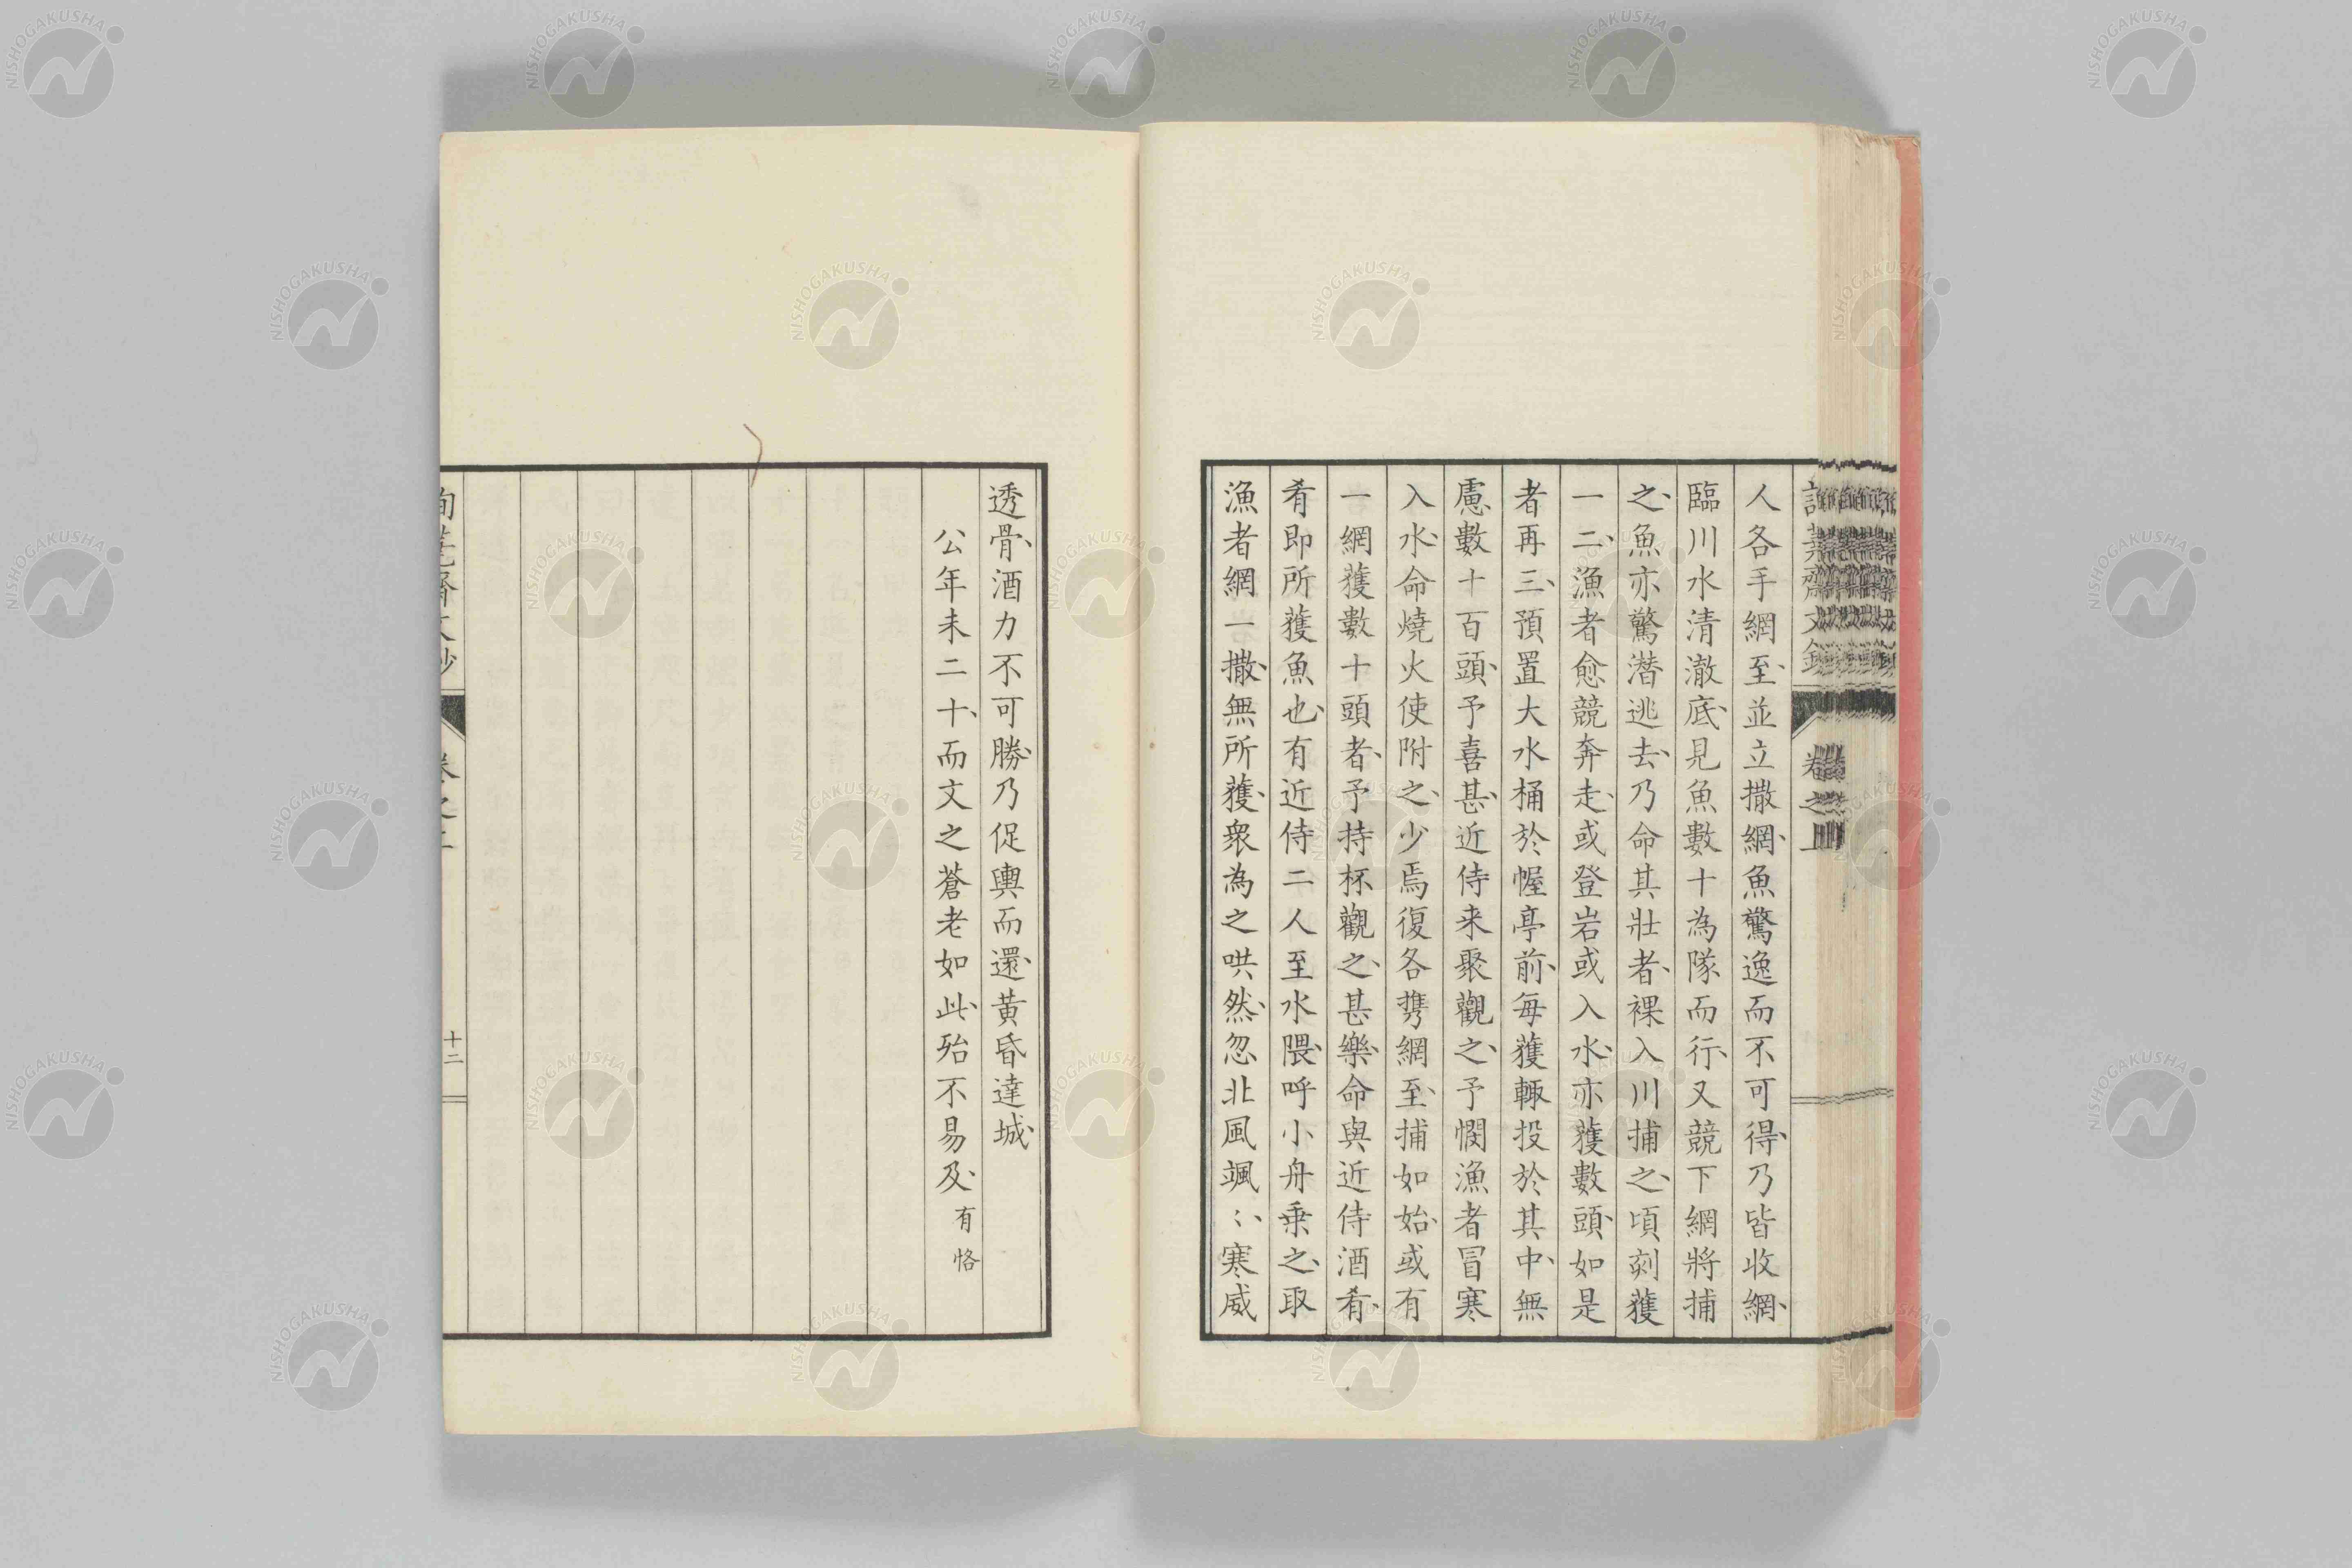 人各手網至、並立撒網、魚驚逸而不可得、乃皆收網、
臨川水清澈底、見魚數十為隊而行、又競下網將捕
之、魚亦驚潜逃去、乃命其壯者、裸入川捕之、頃刻獲
一二、漁者愈競奔走、或登岩或入水、亦獲數頭、如是
者再三、預置大水桶於幄亭前、每獲輙投於其中、無
慮數十百頭、予喜甚、近侍来聚觀之、予憫漁者冒寒
入水、命燒火使附之、少焉復各携網至、捕如始、或有
一網獲數十頭者、予持杯觀之、甚樂、命與近侍酒肴、
肴即所獲魚也、有近侍二人至水隈、呼小舟乗之、取
漁者網一撒、無所獲、衆為之哄然、忽北風颯〻、寒威
透骨、酒力不可勝、乃促輿而還、黃昏達城、
公年未二十、而文之蒼老如此、殆不易及、有恪
十二
NISHOGAKUSHA